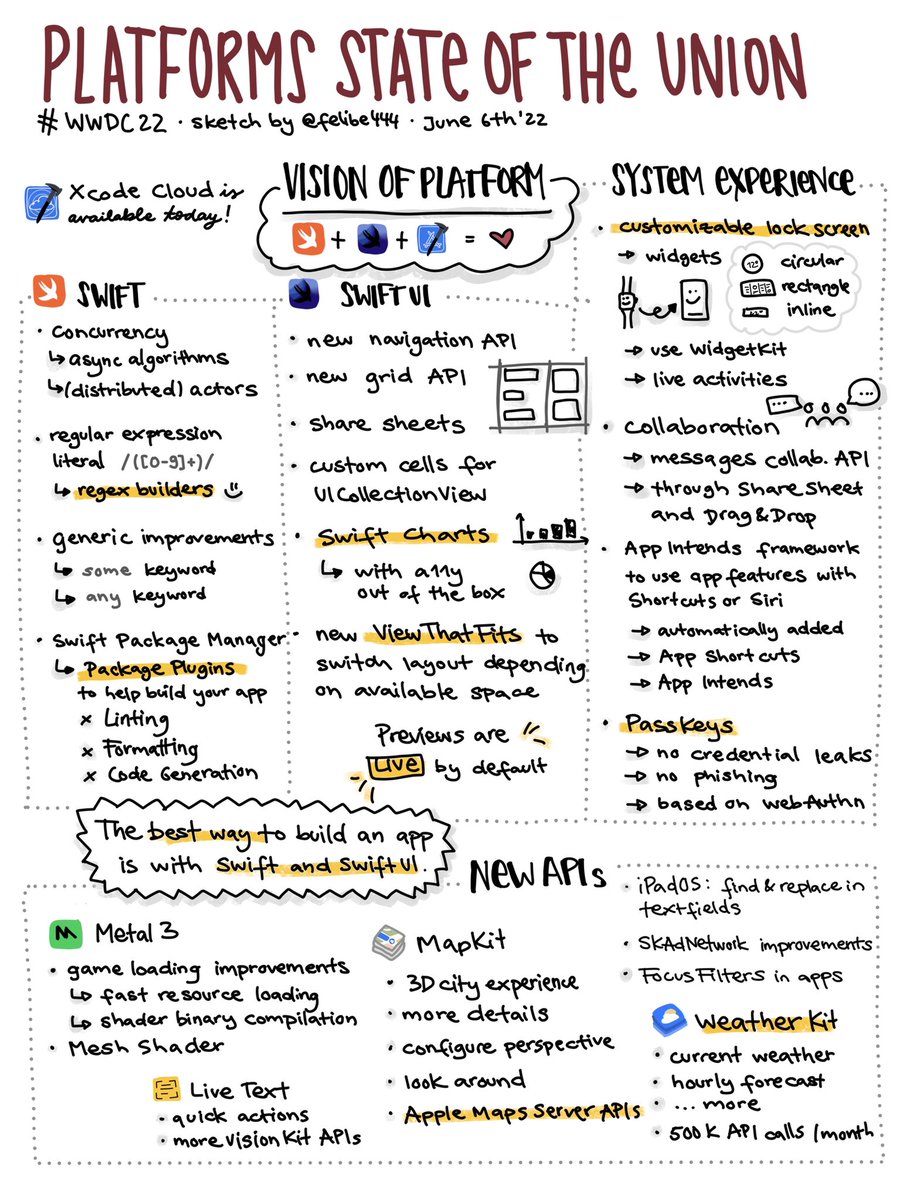 PLATFORMS STATE OF THE UNION
#WWDC22 · sketch by @felibe444 · June 6th '22
Xcode Cloud is
available today!
VISION OF PLATFORM
+ + =
SWIFT
· concurrency
↳ async algorithms
↳ (distributed) actors
· regular expression
literal /([0-9]+)/
↳ regex builders
· generic improvements
↳ some keyword
↳ any keyword
· Swift Package Manager
↳ Package Plugins
to help build your app
x Linting
x Formatting
x Code Generation
SWIFTUI
· new navigation API
· new grid API
· share sheets
· custom cells for
UICollectionView
· Swift Charts
↳ with a11y
out of the box
· new ViewThatFits to
switch layout depending
on available space
Previews are
Live by default
SYSTEM EXPERIENCE
· customizable lock screen
→ widgets
circular
rectangle
inline
→ use WidgetKit
→ live activities
· Collaboration
→ messages collab. API
→ through ShareSheet
and Drag&Drop
· App Intends framework
to use app features with
Shortcuts or Siri
→ automatically added
→ App Shortcuts
→ App Intends
· PassKeys
→ no credential leaks
→ no phishing
→ based on WebAuthn
The best way to build an app
is with Swift and SwiftUI.
NEW APIs
Metal 3
· game loading improvements
↳ fast resource loading
↳ shader binary compilation
· Mesh Shader
Live Text
· quick actions
· more VisionKit APIs
MapKit
· 3D city experience
· more details
· configure perspective
· look around
· Apple Maps Server APIs
· iPadOS: find & replace in
textfields
· SKAdNetwork improvements
· FocusFilters in apps
Weather Kit
· current weather
· hourly forecast
· ... more
· 500K API calls /month